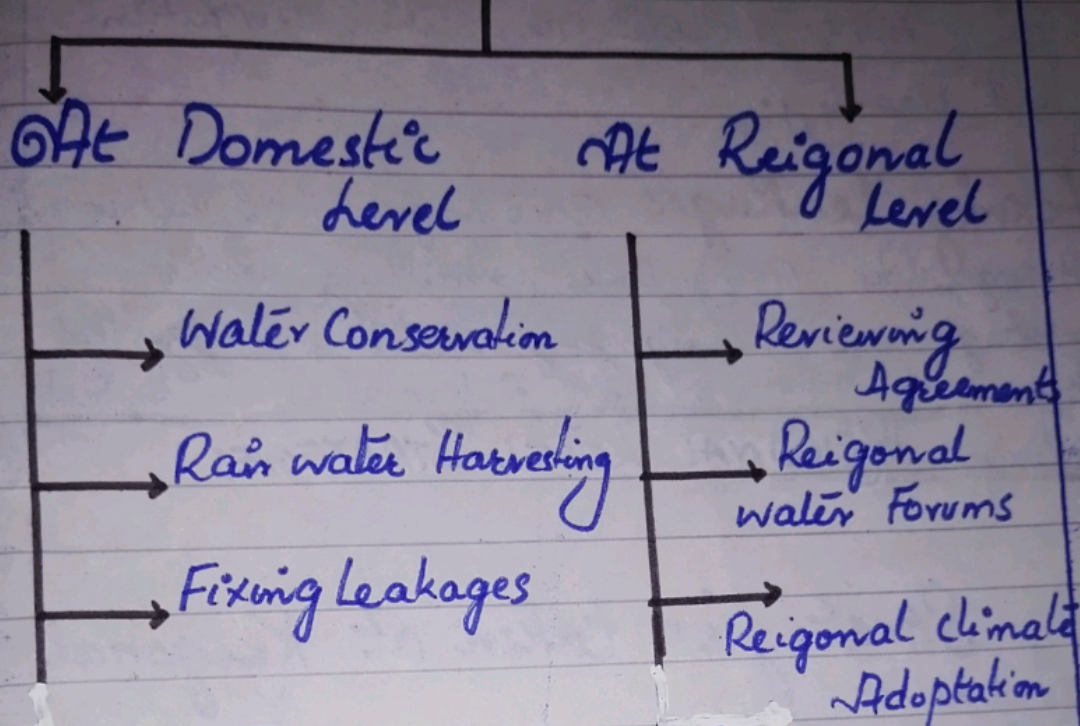 At Domestic
Level
Water Conservation
Rain water Harvesting
Fixing Leakages
At Reigonal
Level
Reviewing
Agreements
Reigonal
water Forums
Reigonal climate
Adoptation